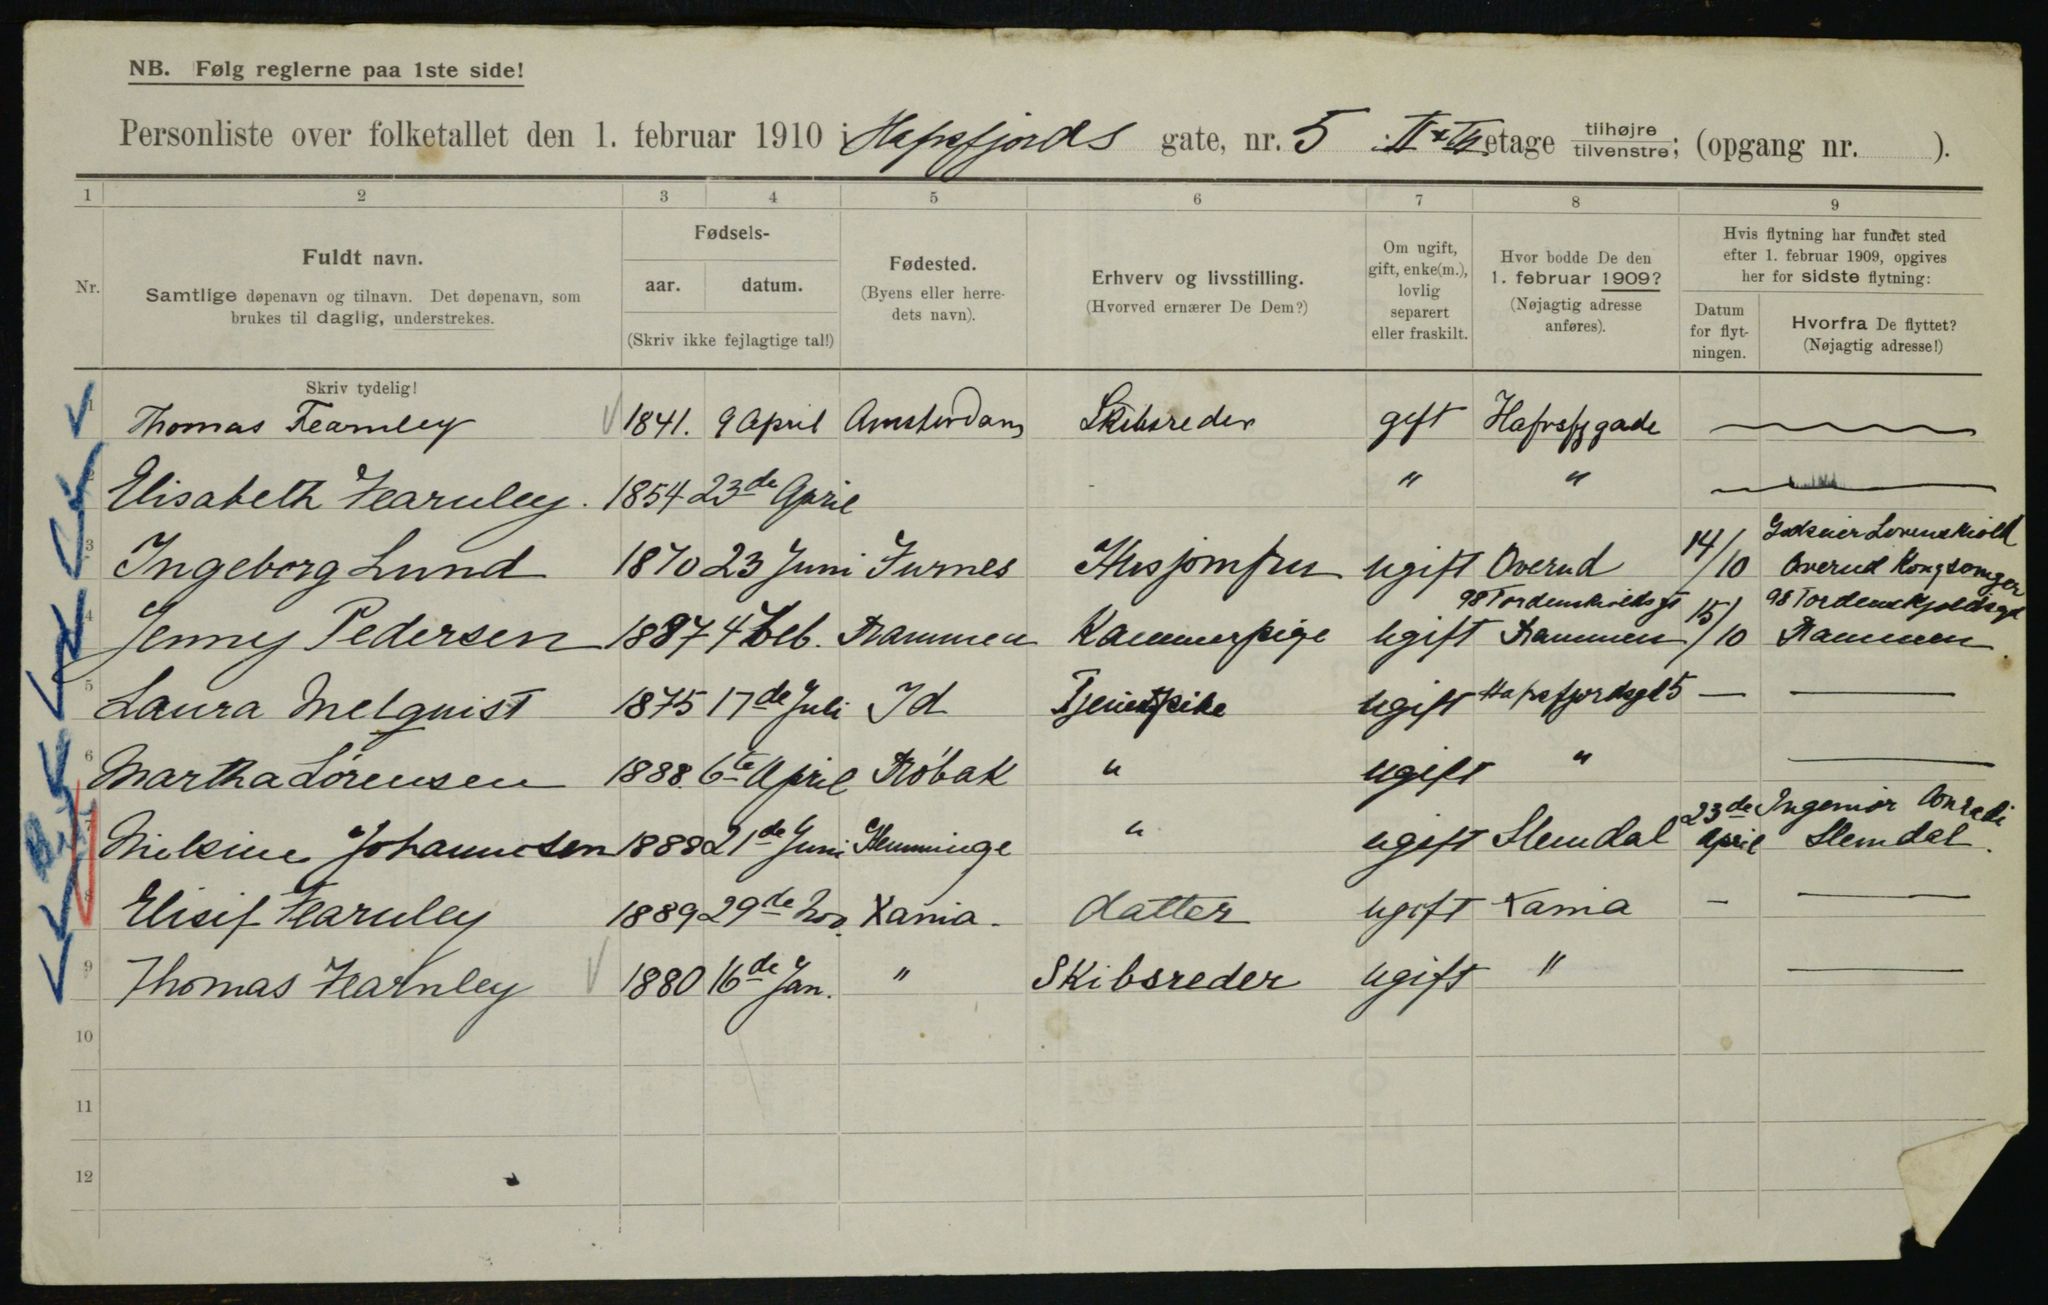 NB. Følg reglerne paa 1ste side!
Personliste over folketallet den 1. februar 1910 i Hafsfjords gate, nr. 5 II + III etage tilhøjre tilvenstre; (opgang nr. ).
1 2 3 4 5 6 7 8 9
Nr.
Fuldt navn.
Samtlige døpenavn og tilnavn. Det døpenavn, som
brukes til daglig, understrekes.
Fødsels-
aar. datum.
(Skriv ikke fejlagtige tal!)
Fødested.
(Byens eller herre-
dets navn).
Erhverv og livsstilling.
(Hvorved ernærer De Dem?)
Om ugift,
gift, enke(m.),
lovlig
separert
eller fraskilt.
Hvor bodde De den
1. februar 1909?
(Nøjagtig adresse
anføres).
Hvis flytning har fundet sted
efter 1. februar 1909, opgives
her for sidste flytning:
Datum
for flyt-
ningen.
Hvorfra De flyttet?
(Nøjagtig adresse!)
Skriv tydelig!
1 Thomas Fearnley 1841. 9 April Amsterdam Skibsreder gift Hafrsfj gade
2 Elisabeth Fearnley. 1854 23de April " "
3 Ingeborg Lund 1870 23 Juni Furnes Husjomfru ugift Overud 14/10 Godseier Løvenskiold
Overud Kongsvinger
4 Jenny Pedersen 1887 4 Feb. Drammen Kammerpige ugift 98 Tordenskioldsgt
Drammen 15/10 98 Tordenskjoldsgt
Drammen.
5 Laura Melquist 1875 17de Juli Id Tjenestpike ugift Hafrsfjordsgt 5 —
6 Martha Sørensen 1888. 6te April Drøbak " ugift "
7 Nielsine Johannesen 1888 21de Juni Hemminge " ugift Slemdal 23de
April Ingeniør Conradi
Slemdal.
8 Elisif Fearnley 1889 29de Nov. Xania. datter ugift Xania —
9 Thomas Fearnley 1880 16de Jan. " Skibsreder ugift "
10
11
12